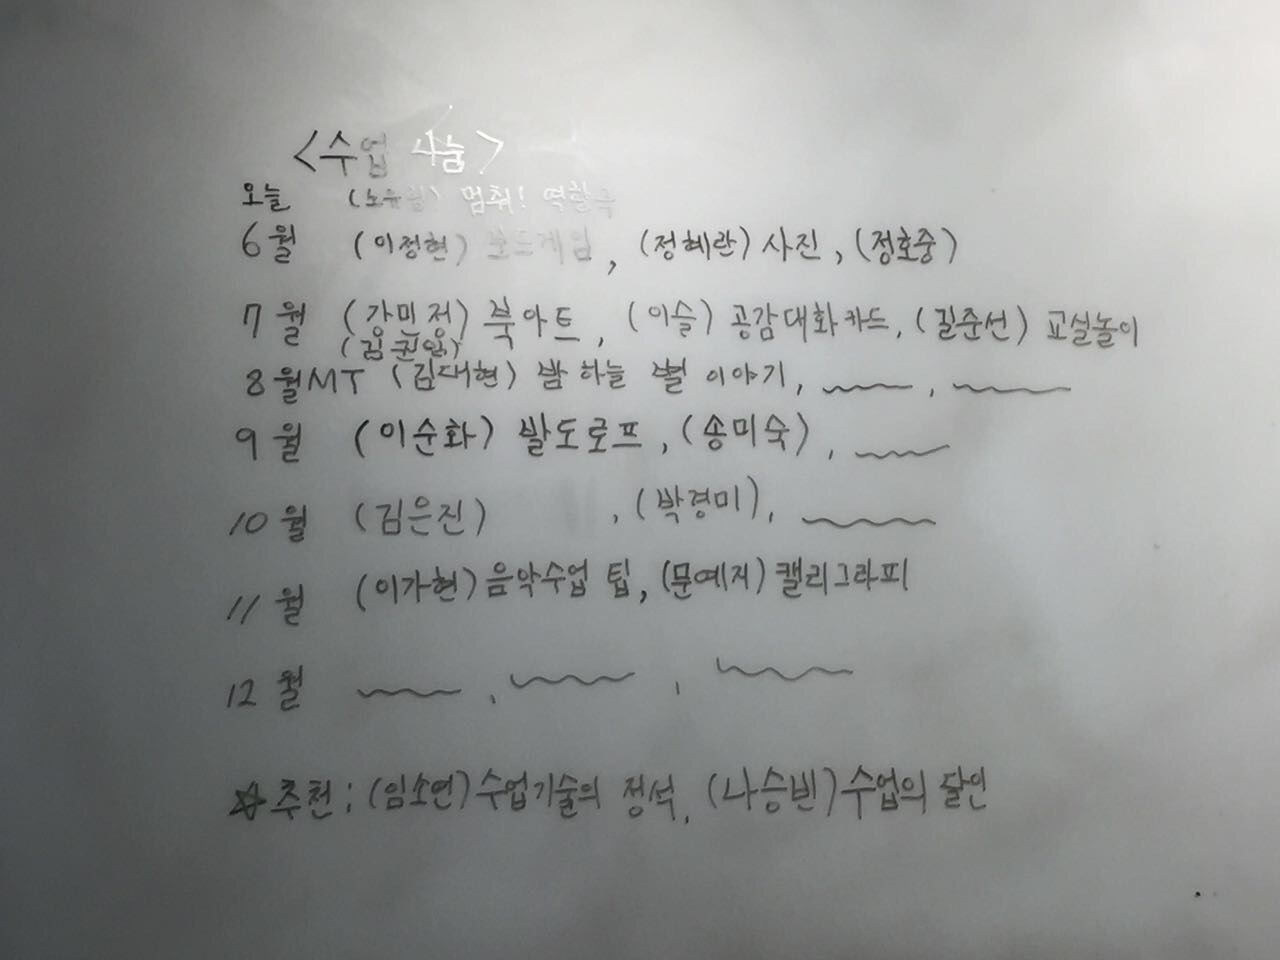 <수업 나눔>
오늘 (노유월) 멈춰! 역할극
6월 (이정현) 보드게임, (정혜란) 사진, (정호중)
7월 (강미정) 북아트, (이슬) 공감대화카드, (길준선) 교실놀이
(김권일)
8월MT (김대현) 밤 하늘 별 이야기,
9월 (이순화) 발도로프, (송미숙),
10월 (김은진) , (박경미),
11월 (이가현) 음악수업 팁, (문예지) 캘리그라피
12월
☆추천 : (임소연) 수업기술의 정석, (나승빈) 수업의 달인